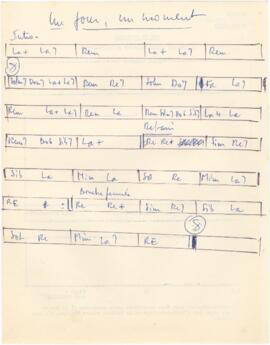 Un jour, un moment
Intro-
La+ La7 Rem La+ La7 Rem
Solm7 Do7 La+ La7 Rem Re7 Solm Do7 Fa La7
Rem La+ La7 Rem Rem Solm7 Do6 Sib7 La4 La
Refrain
Rem7 Do6 Sib7 La+ Re Re+ Sim Re7
Sib La Mim La7 Sol Re Mim La7
Bouche fermée
RE Re Re+ Sim Re7 Sib La
Sol Re Mim La7 RE